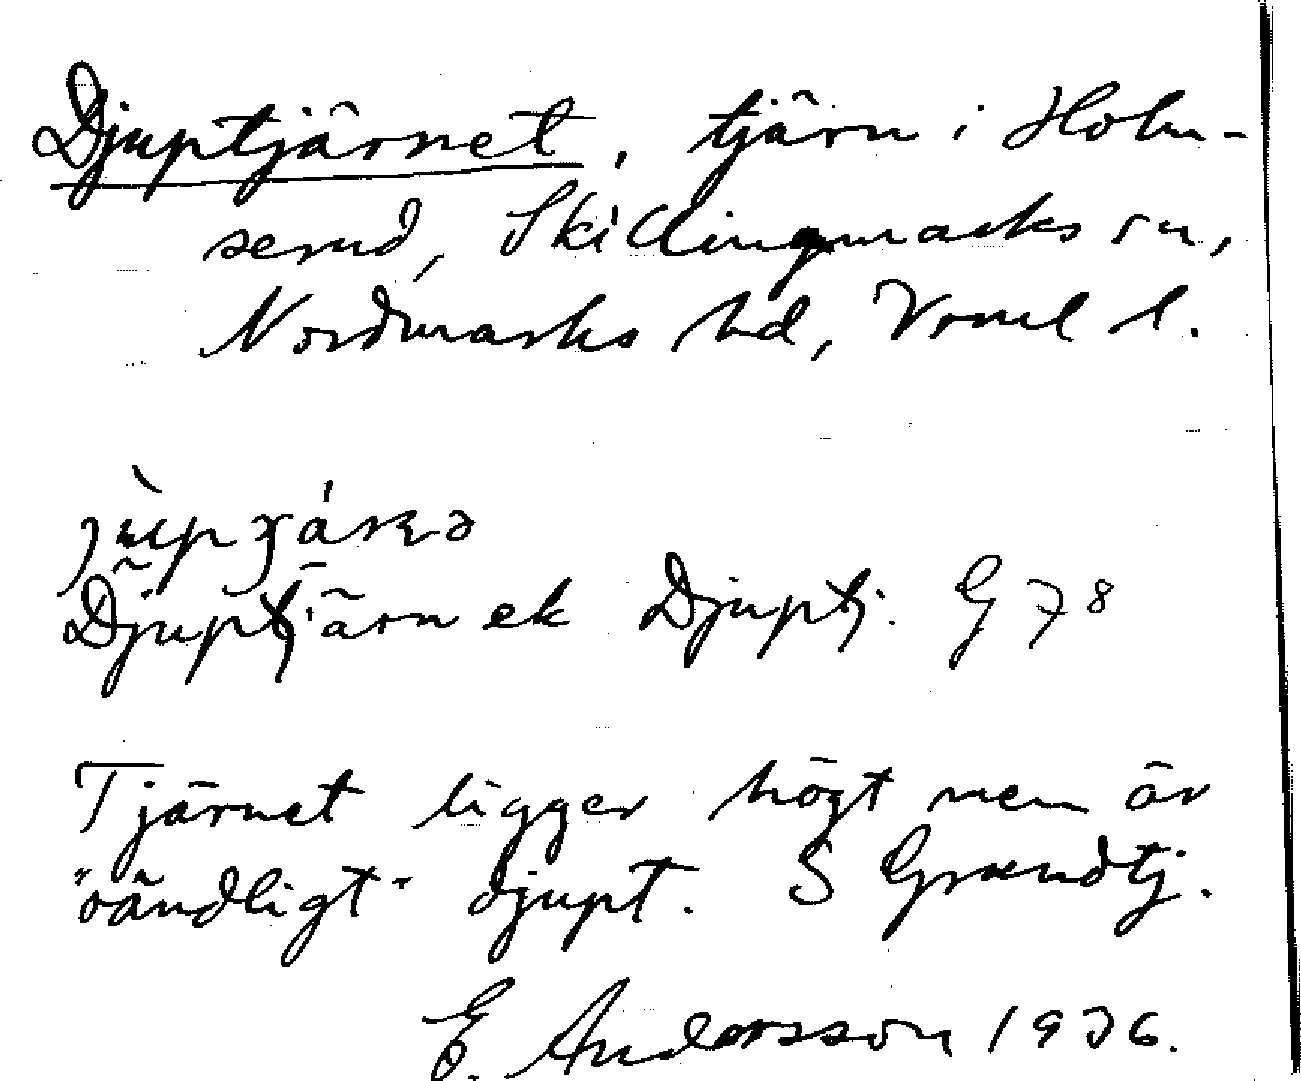 Djuptjärnet, tjärn i Holm-
serud, Skillingmarks sn,
Nordmarks hd, Vrml l.
Djuptjärn ek Djuptj. G 78
Tjärnet ligger högt men är
"oändligt" djupt. S Grundtj.
E. Andersson 1936.